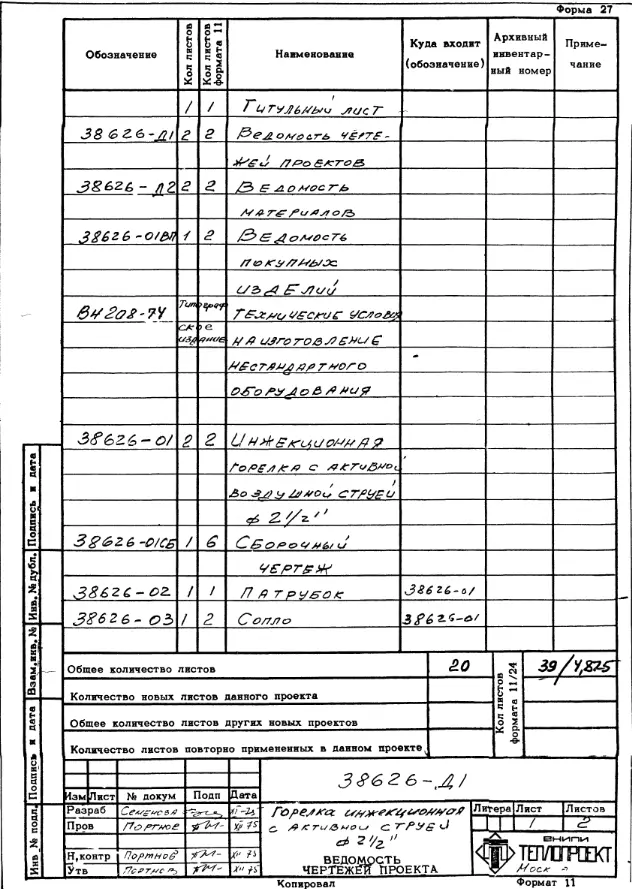 Форма 27
Обозначение Кол листов Кол листов формата 11 Наименование Куда входит (обозначение) Архивный инвентар-ный номер Приме-чание
1 1 Титульный лист
38626-Д1 2 2 Ведомость черте-
жей проектов
38626-Д2 2 2 Ведомость
материалов
38626-01ВП 1 2 Ведомость
покупных
изделий
ВН 208-74 Типограф Технические условия
ское издание на изготовление
нестандартного
оборудования
38626-01 2 2 Инжекционная
горелка с активной
воздушной струей
ф 2 1/2''
38626-01СБ 1 6 Сборочный
чертеж
38626-02 1 1 Патрубок 38626-01
38626-03 1 2 Сопло 38626-01
Общее количество листов 20 Кол листов формата 11/24 39/4,875
Количество новых листов данного проекта
Общее количество листов других новых проектов
Количество листов повторно примененных в данном проекте
Инв № подл. Подпись и дата Взам.инв. № Инв. № дубл. Подпись и дата
38626-Д1
Изм Лист № докум Подп Дата
Разраб Семенова
Пров Портной XII 75
Н.контр Портной XII 75
Утв XII 75
Горелка инжекционная
с активной струей
ф 2 1/2''
ВЕДОМОСТЬ
ЧЕРТЕЖЕЙ ПРОЕКТА
Литера Лист Листов
1 2
ВНИПИ
ТЕПЛОПРОЕКТ
Копировал Формат 11